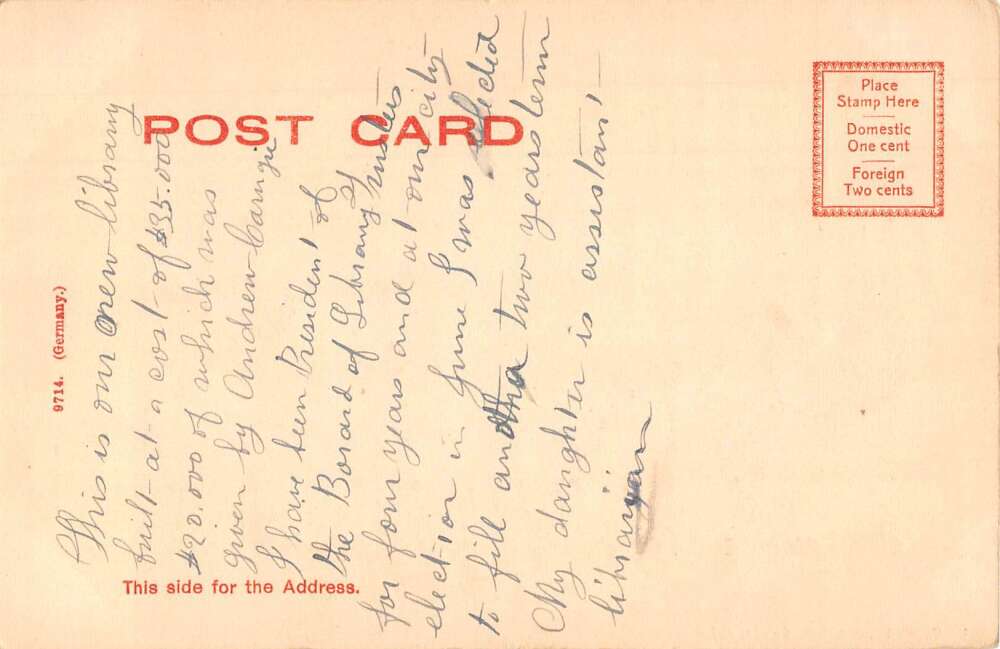 POST CARD
Place
Stamp Here
Domestic
One cent
Foreign
Two cents
9714. (Germany.)
This side for the Address.
This is our new library
built at a cost of $35.000
$22.000 of which was
given by Andrew Carnigie
I have been President of
the Board of Library Trustees
for four years and at our city
election in June I was elected
to fill another two years term
My daughter is assistant
librarian